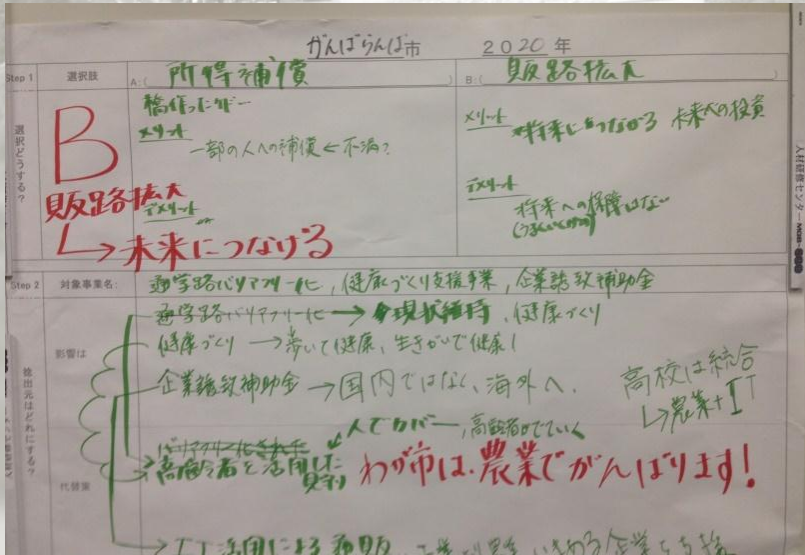 がんばらんば市 2020年
Step 1 選択肢 A:(所得補償) B:(販路拡大)
選択どうする?
B
販路拡大
→未来につなげる
メリット
一部の人への補償←不満?
デメリット
メリット
将来につながる 未来への投資
デメリット
将来への保障はない
人材研修センター
Step 2 対象事業名: 通学路バリアフリー化, 健康づくり支援事業, 企業誘致補助金
捻出元はどれにする?
影響は
通学路バリアフリー化→現状維持、健康づくり
健康づくり→歩いて健康、生きがいで健康!
企業誘致補助金→国内ではなく、海外へ.
高校は統合
→農業+IT
人でカバー, 高齢者がでていく
代替案
→高齢者を活用した見守り
わが市は、農業でがんばります!
→IT活用による